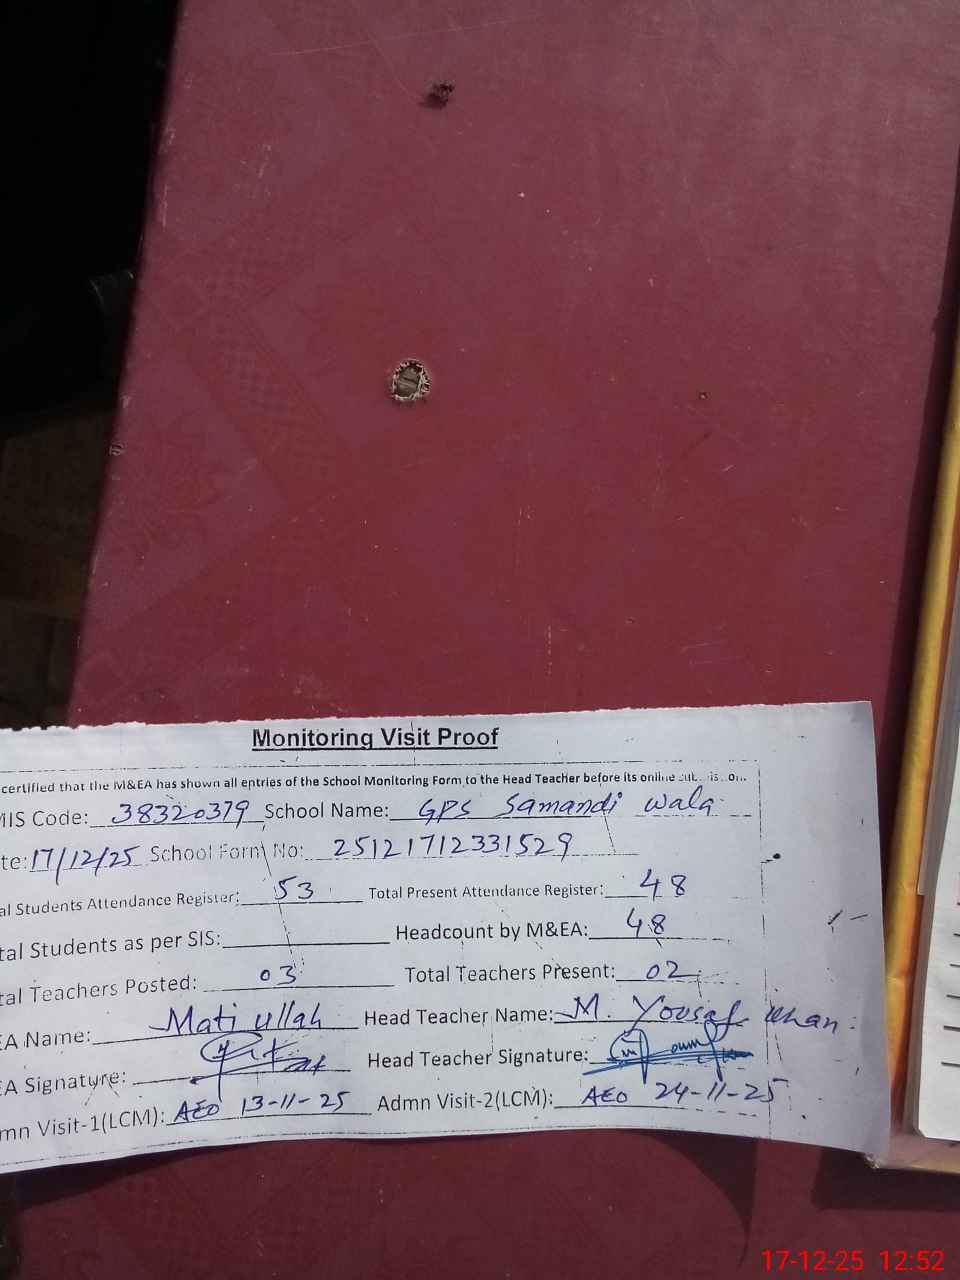 Monitoring Visit Proof
certified that the M&EA has shown all entries of the School Monitoring Form to the Head Teacher before its online
MIS Code: 38320379 School Name: GPS Samandi wala
te: 17/12/25 School Form No: 25121712331529
al Students Attendance Register: 53 Total Present Attendance Register: 48
tal Students as per SIS: Headcount by M&EA: 48
tal Teachers Posted: 03 Total Teachers Present: 02
EA Name: Mati ullah Head Teacher Name: M. Yousaf khan
EA Signature: Head Teacher Signature:
mn Visit-1(LCM): AEO 13-11-25 Admn Visit-2(LCM): AEO 24-11-25
17-12-25 12:52